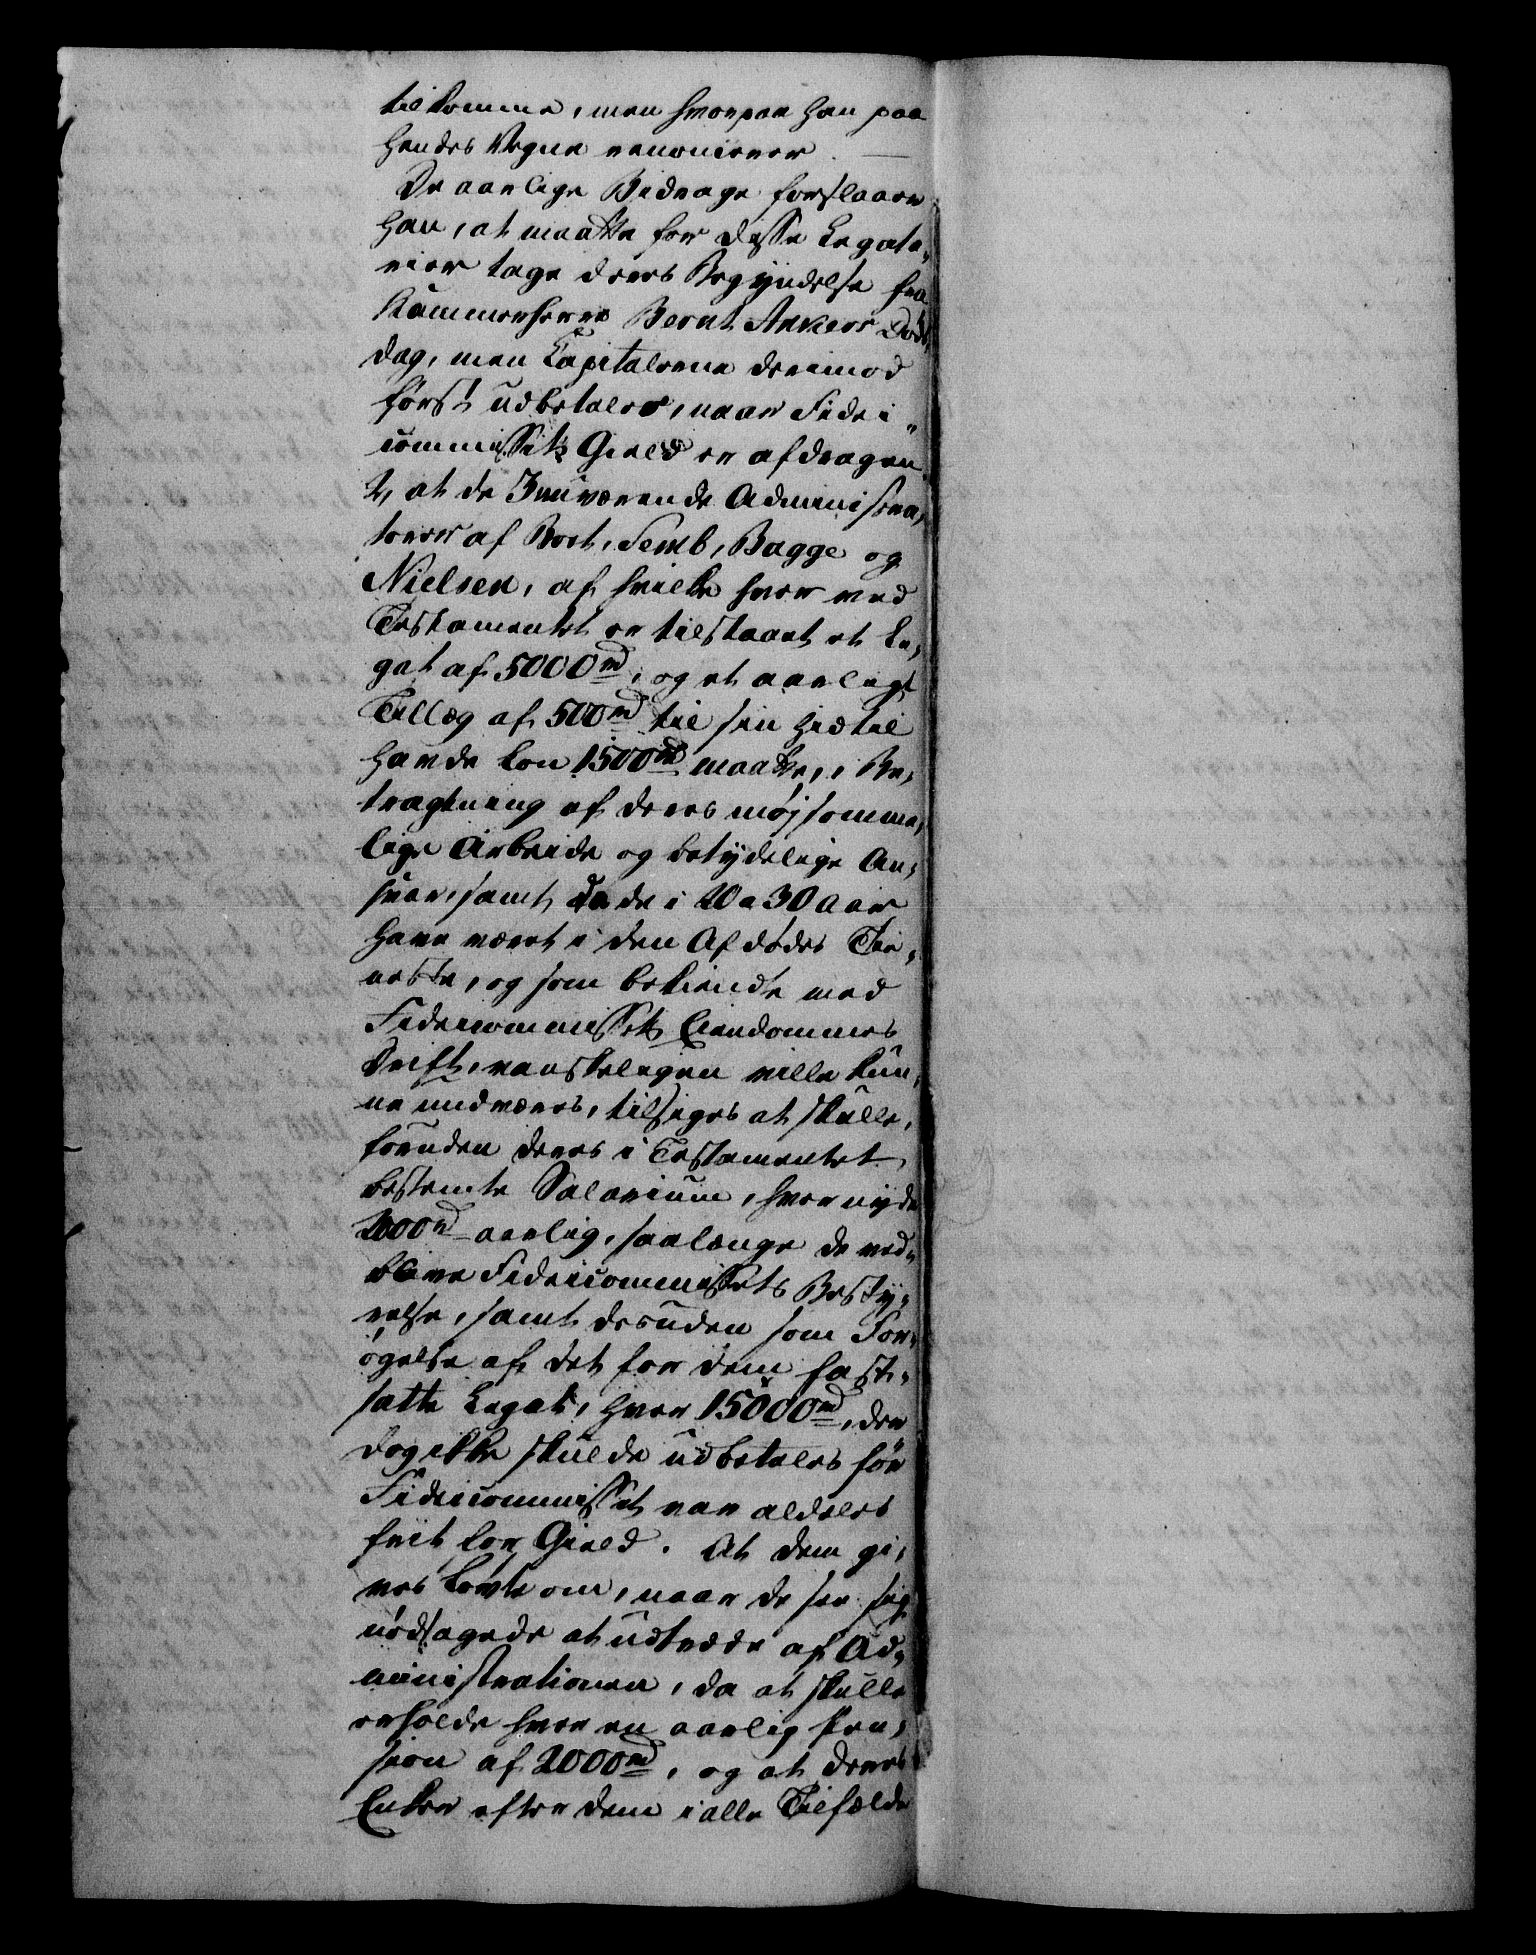 tilkomme, men hvorpaa han paa
hendes Vegne renoncerer. —
De aarlige Bidrage forslaaer
han, at maatte for disse Legata„
rier tage deres Begyndelse fra
Kammerherre Bernt Ankers Døds„
dag, men Capitalerne derimod
først udbetales, naar Fidei„
commissets Gield er afdragen.
2, at de 3 nuværende Administra„
torer af Boet, Semb, Bagge og
Nielsen, af hvilke hver ved
Testamentet er tilstaaet et Le„
gat af 5000 rd, og et aarligt
Tillæg af 500 rd til sin hidtil
havde Løn 1500 rd maatte, i Be„
tragtning af deres møjsomme„
lige Arbeide og betydelige An„
svar, samt da de i 20 a 30 Aar
have været i den Afdødes Tie„
neste, og som bekiendte med
Fideicommissets Eiendommes
Drift, vanskeligen ville kun„
ne undværes, tilsiges at skulle,
foruden deres i Testamentet
bestemte Salarium, hver nyde
2000 rd aarlig, saalænge de ved„
blive Fideicommissets Besty„
relse, samt desuden som For„
øgelse af det for dem fast„
satte Legat, hver 15000 rd, der
dog ikke skulde udbetales før
Fideicommisset var aldeles
friit for Gield. At dem gi„
ves Løvte om, naar de see sig
nødsagede at udtræde af Ad„
ministrationen, da at skulle
erholde hver en aarlig Pen„
sion af 2000 rd, og at deres
Enker efter dem i alle Tilfælde